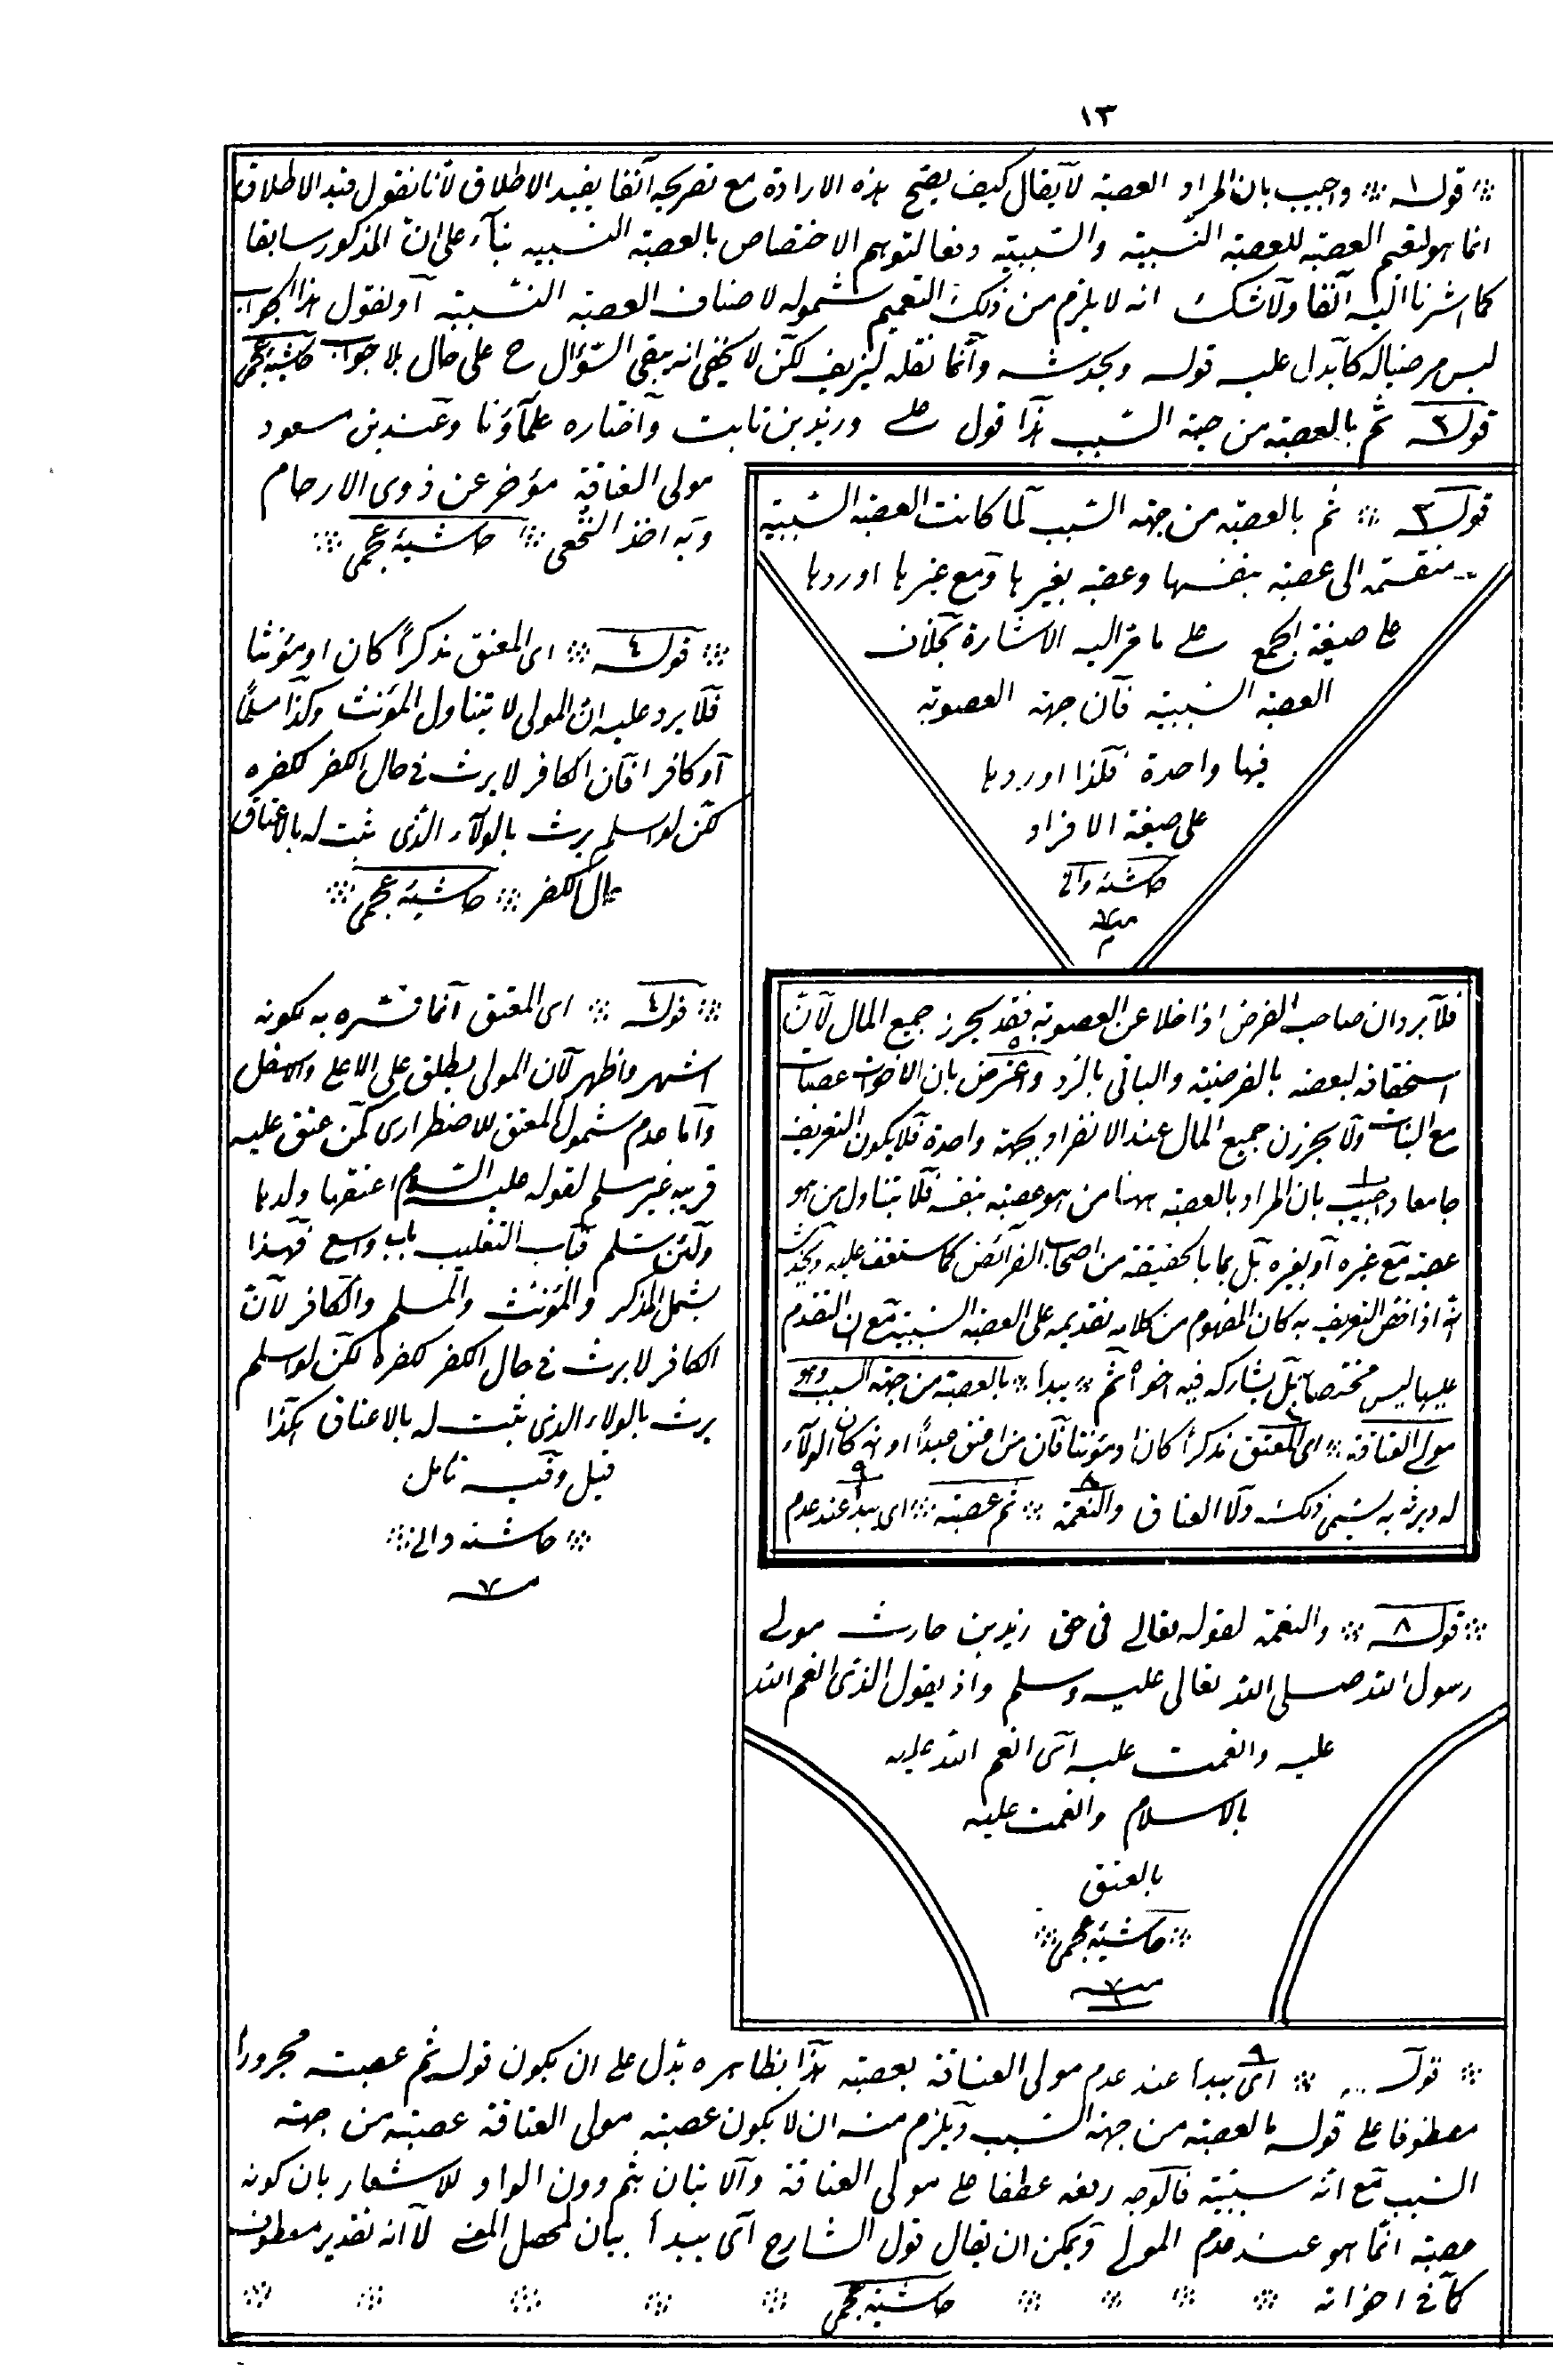 ١٣
قوله ١ واجيب بان المراد العصبة لا يقال كيف يصح هذه الارادة مع تصريحه آنفا بقيد الاطلاق لانا نقول قيد الاطلاق
انما هو لتعميم العصبة للعصبة النسبية والسببية دفعا لتوهم الاختصاص بالعصبة النسبيه بناء على ان المذكور سابقا
كما اشرنا اليه آنفا ولا شك انه لا يلزم من ذلك التعميم شموله لاصناف العصبة النسبية او نقول هذا الجواب
ليس مرضيا له كما يدل عليه قوله ويخدشه وانما نقله ليزيف لكن لا يخفى انه يبقى السؤال ح على حال بلا جواب حاشية عجمى
قوله ٢ ثم بالعصبة من جهة السبب هذا قول على وزيد بن ثابت واختاره علماؤنا وعند بن مسعود
مولى العتاقة مؤخر عن ذوى الارحام
وبه اخذ النخعى حاشيۀ عجمى
قوله ٣ ثم بالعصبة من جهة السبب لما كانت العصبة السببية
منقسمة الى عصبة بنفسها وعصبة بغيرها ومع غيرها اوردها
على صيغة الجمع على ما مر اليه الاشارة بخلاف
العصبة السببية فان جهة العصوبة
فيها واحدة فلذا اوردها
على صيغة الافراد
حاشيۀ والى
قوله ٤ اى المعتق مذكراً كان او مؤنثا
فلا يرد عليه ان المولى لا يتناول المؤنث وكذا مسلما
او كافرا فان الكافر لا يرث فى حال الكفر لكفره
لكن لو اسلم يرث بالولاء الذى ثبت له بالاعتاق
حال الكفر حاشيۀ عجمى
قوله ٤ اى المعتق انما فسره به لكونه
اشهر واظهر لان المولى يطلق على الاعلى والاسفل
واما عدم شمول المعتق للاضطرارى كمن عتق عليه
قريبه غير مسلم لقوله عليه السلام اعتقها ولدها
ولئن سلم فباب التغليب باب واسع فهذا
يشمل المذكر والمؤنث والمسلم والكافر لان
الكافر لا يرث فى حال الكفر لكفره لكن لو اسلم
يرث بالولاء الذى ثبت له بالاعتاق هكذا
قيل وفيه تامل
حاشيه والى
فلا يرد ان صاحب الفرض اذا خلا عن العصوبة فقد يحرز جميع المال لان
استحقاقه لبعضه بالفرضية والباقى بالرد واعترض بان الاخوات عصبات
مع البنات ولا يحرزن جميع المال عند الانفراد بجهة واحدة فلا يكون التعريف
جامعا واجيب بان المراد بالعصبة ههنا من هو عصبة بنفسه فلا يتناول من هو
عصبة مع غيره او بغيره بل هما بالحقيقة من اصحاب الفرائض كما ستقف عليه ويخدشه
انه اذا خص التعريف به كان المفهوم من كلامه تقديمه على العصبة السببية مع ان التقدم
عليها ليس مختصا به بل يشاركه فيه اخواه ثم يبدا بالعصبة من جهة السبب وهو
مولى العتاقة اى المعتق مذكراً كان او مؤنثا فان من اعتق عبداً او امة كان الولاء
له ويرث به ويسمى ذلك ولاء العتاق والنعمة ثم عصبته اى يبدا عند عدم
قوله ٨ والنعمة لقوله تعالى فى حق زيد بن حارث مولى
رسول الله صلى الله تعالى عليه وسلم واذ يقول الذى انعم الله
عليه وانعمت عليه اى انعم الله عليه
بالاسلام وانعمت عليه
بالعتق
حاشيۀ عجمى
قوله ٩ اى يبدا عند عدم مولى العتاقة بعصبته هذا بظاهره يدل على ان يكون قوله ثم عصبته مجرورا
معطوفا على قوله بالعصبة من جهة السبب ويلزم منه ان لا يكون عصبة مولى العتاقة عصبة من جهة
السبب مع انه سببية فالوجه رفعه عطفا على مولى العتاقة والاتيان بثم دون الواو للاشعار بان كونه
عصبة انما هو عند عدم المولى ويمكن ان يقال قول الشارح اى يبدأ بيان لمحصل المعنى لا انه تقدير معطوف
كما فى اخواته حاشيۀ عجمى